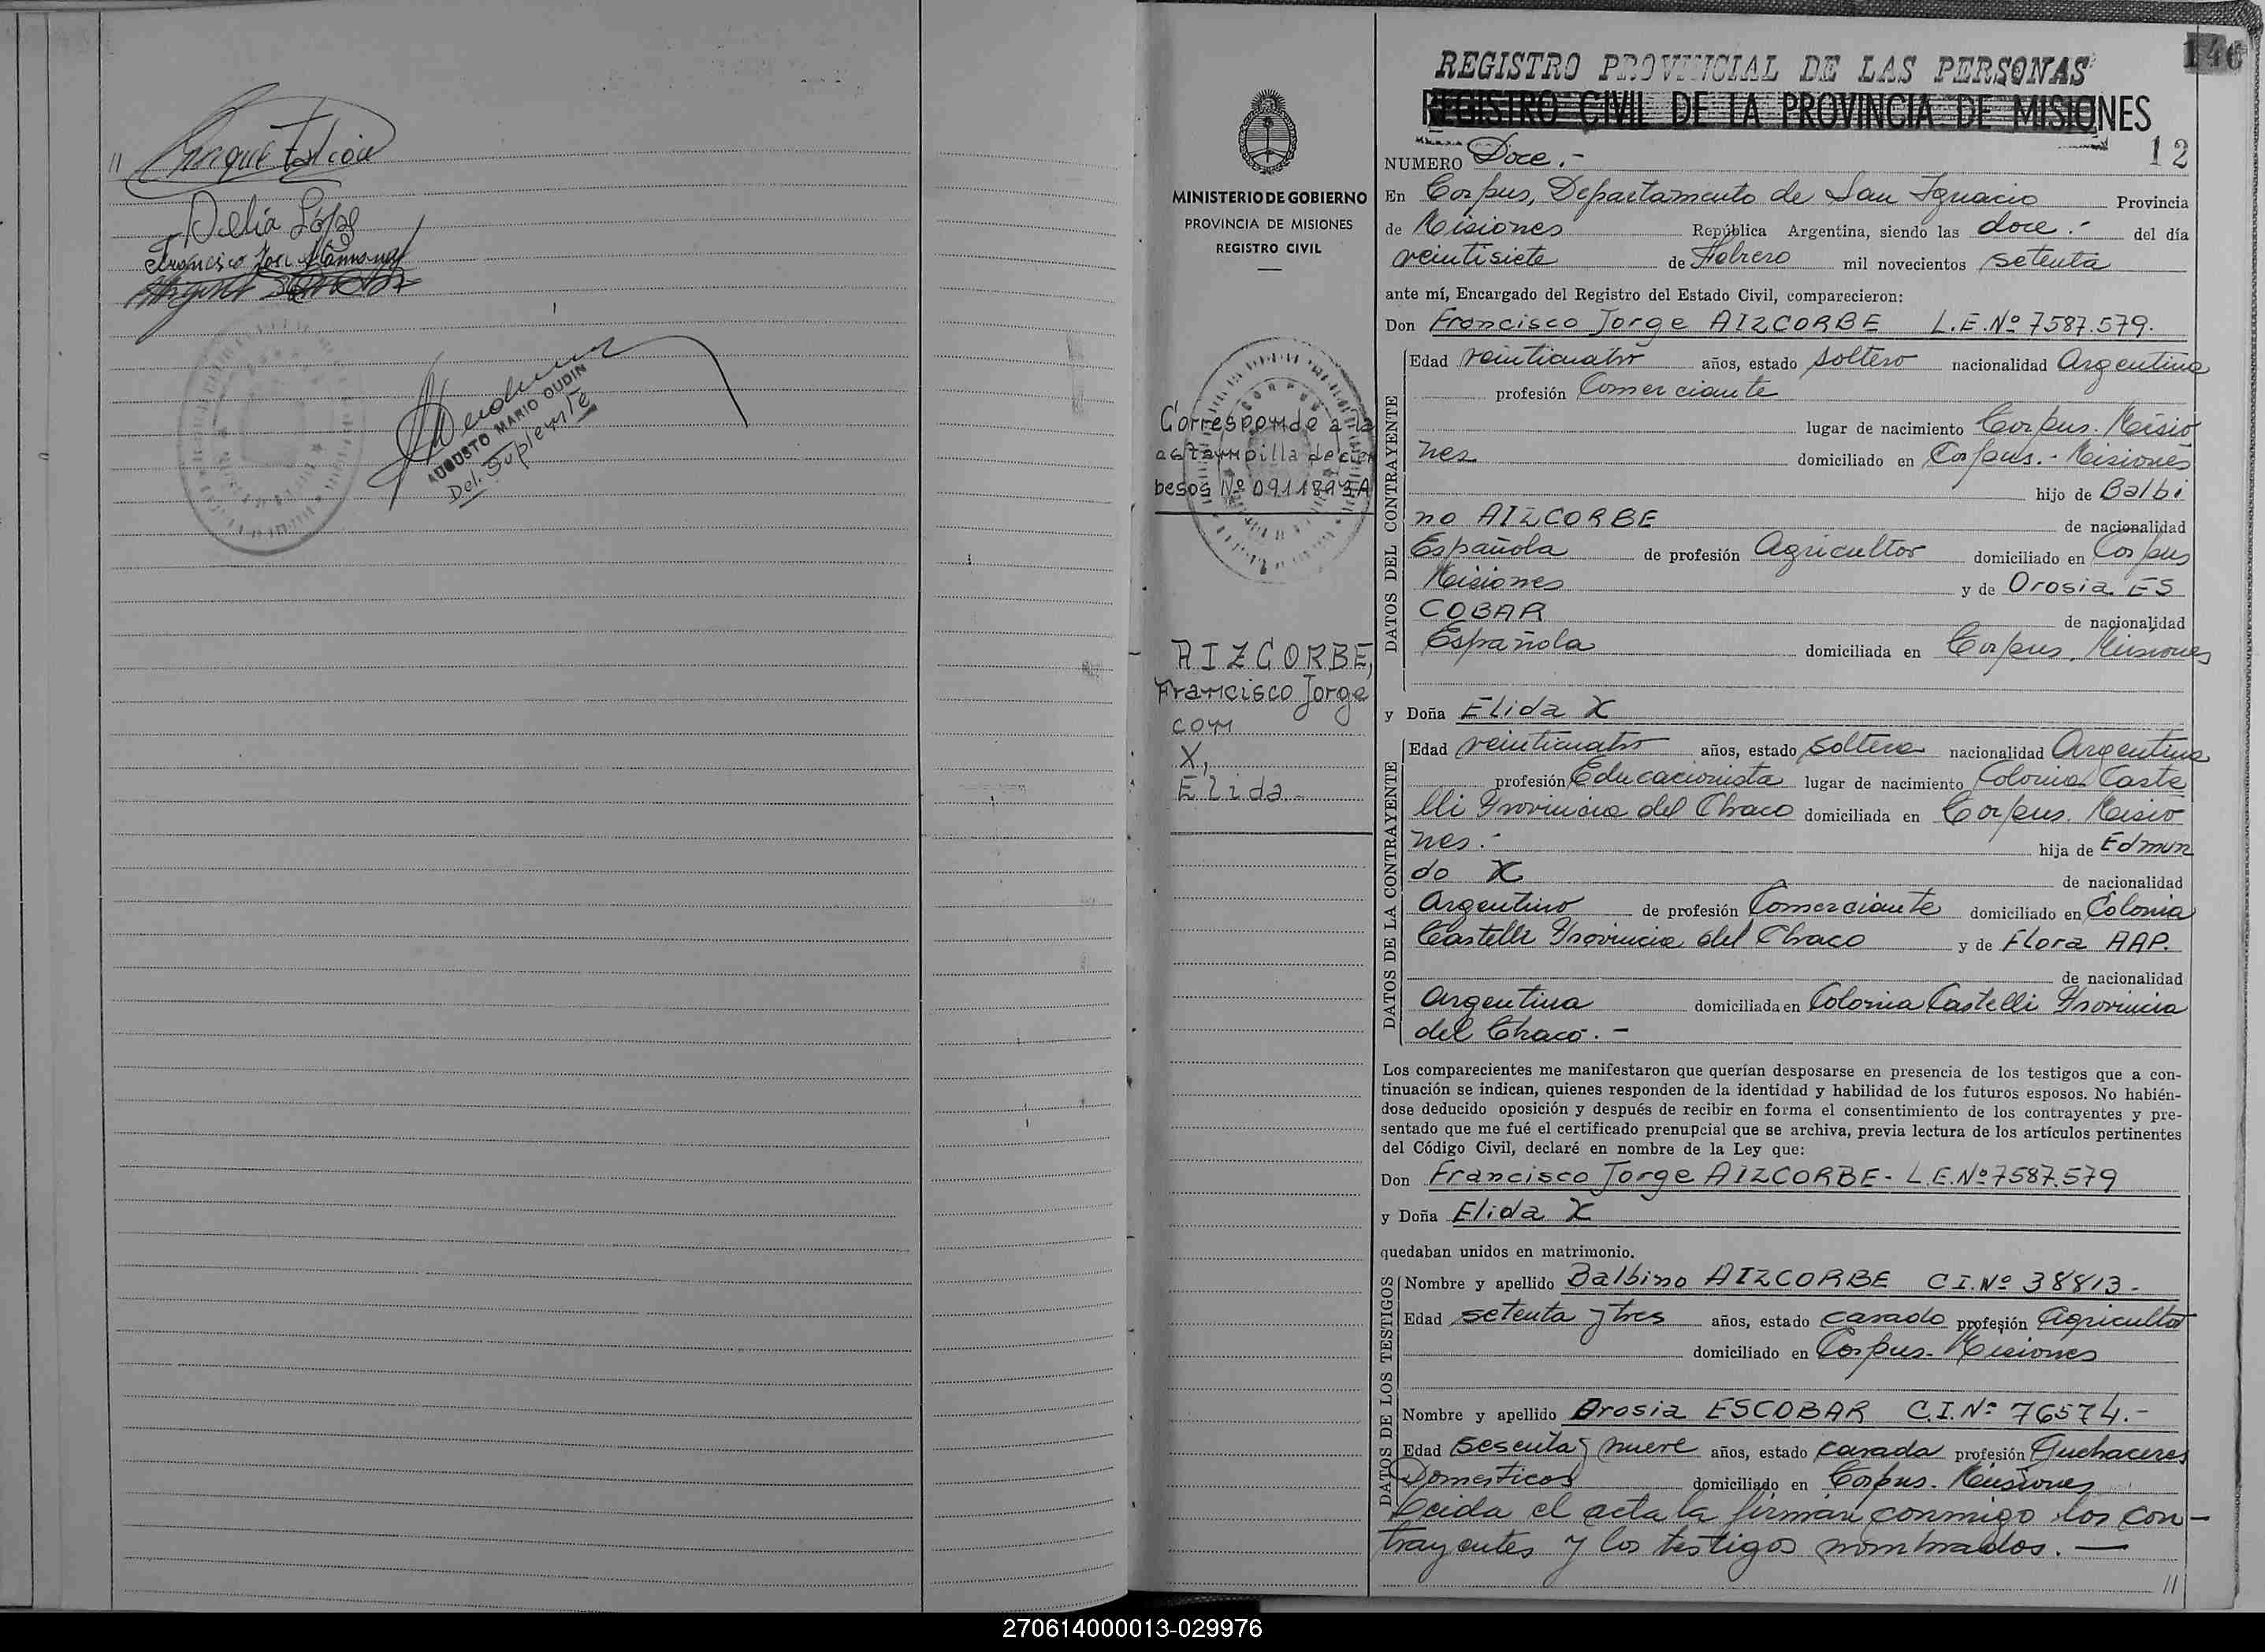 //
Delia López
AUGUSTO MARIO OUDIN
Del. Suplente
146
REGISTRO PROVINCIAL DE LAS PERSONAS
REGISTRO CIVIL DE LA PROVINCIA DE MISIONES
12
MINISTERIO DE GOBIERNO
PROVINCIA DE MISIONES
REGISTRO CIVIL
Corresponde a la
estampilla de cien
pesos Nº 0911893A
AIZCORBE,
Francisco Jorge
con
X,
Elida-
NUMERO Doce.-
En Corpus, Departamento de San Ignacio Provincia
de Misiones República Argentina, siendo las doce.- del día
veintisiete de Febrero mil novecientos setenta
ante mí, Encargado del Registro del Estado Civil, comparecieron:
Don Francisco Jorge AIZCORBE L.E.Nº 7587.579.
DATOS DEL CONTRAYENTE
Edad veinticuatro años, estado soltero nacionalidad Argentina
profesión Comerciante
lugar de nacimiento Corpus. Misio
nes domiciliado en Corpus.- Misiones
hijo de Balbi
no AIZCORBE de nacionalidad
Española de profesión Agricultor domiciliado en Corpus
Misiones y de Orosia ES
COBAR de nacionalidad
Española domiciliada en Corpus. Misiones
y Doña Elida X
DATOS DE LA CONTRAYENTE
Edad veinticuatro años, estado soltera nacionalidad Argentina
profesión Educacionista lugar de nacimiento Colonia Caste
lli Provincia del Chaco domiciliada en Corpus. Misio
nes.- hija de Edmun
do X de nacionalidad
Argentino de profesión Comerciante domiciliado en Colonia
Castelli Provincia del Chaco y de Flora AAP.
de nacionalidad
Argentina domiciliada en Colonia Castelli Provincia
del Chaco.-
Los comparecientes me manifestaron que querían desposarse en presencia de los testigos que a con-
tinuación se indican, quienes responden de la identidad y habilidad de los futuros esposos. No habién-
dose deducido oposición y después de recibir en forma el consentimiento de los contrayentes y pre-
sentado que me fué el certificado prenupcial que se archiva, previa lectura de los artículos pertinentes
del Código Civil, declaré en nombre de la Ley que:
Don Francisco Jorge AIZCORBE- L.E.Nº 7587.579
y Doña Elida X
quedaban unidos en matrimonio.
DATOS DE LOS TESTIGOS
Nombre y apellido Balbino AIZCORBE C I.Nº 38813-
Edad setenta y tres años, estado casado profesión Agricultor
domiciliado en Corpus- Misiones
Nombre y apellido Orosia ESCOBAR C.I.Nº 76574.-
Edad sesenta y nueve años, estado casada profesión Quehaceres
Domesticos domiciliado en Corpus. Misiones
Leida el acta la firman conmigo los con-
trayentes y los testigos nombrados.—
//
270614000013-029976